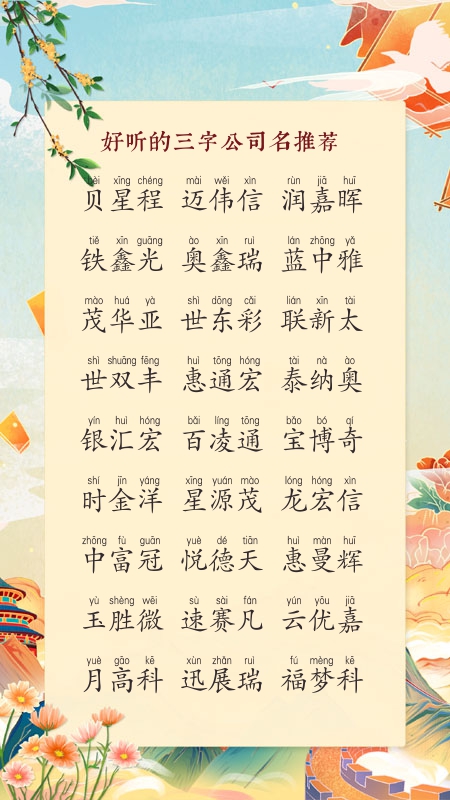 好听的三字公司名推荐
bèi xīng chéng mài wěi xìn rùn jiā huī
贝星程 迈伟信 润嘉晖
tiě xīn guāng ào xīn ruì lán zhōng yǎ
铁鑫光 奥鑫瑞 蓝中雅
mào huá yà shì dōng cǎi lián xīn tài
茂华亚 世东彩 联新太
shì shuāng fēng huì tōng hóng tài nà ào
世双丰 惠通宏 泰纳奥
yín huì hóng bǎi líng tōng bǎo bó qí
银汇宏 百凌通 宝博奇
shí jīn yáng xīng yuán mào lóng hóng xìn
时金洋 星源茂 龙宏信
zhōng fù guān yuè dé tiān huì màn huī
中富冠 悦德天 惠曼辉
yù shèng wēi sù sài fán yún yōu jiā
玉胜微 速赛凡 云优嘉
yuè gāo kē xùn zhǎn ruì fú mèng kē
月高科 迅展瑞 福梦科